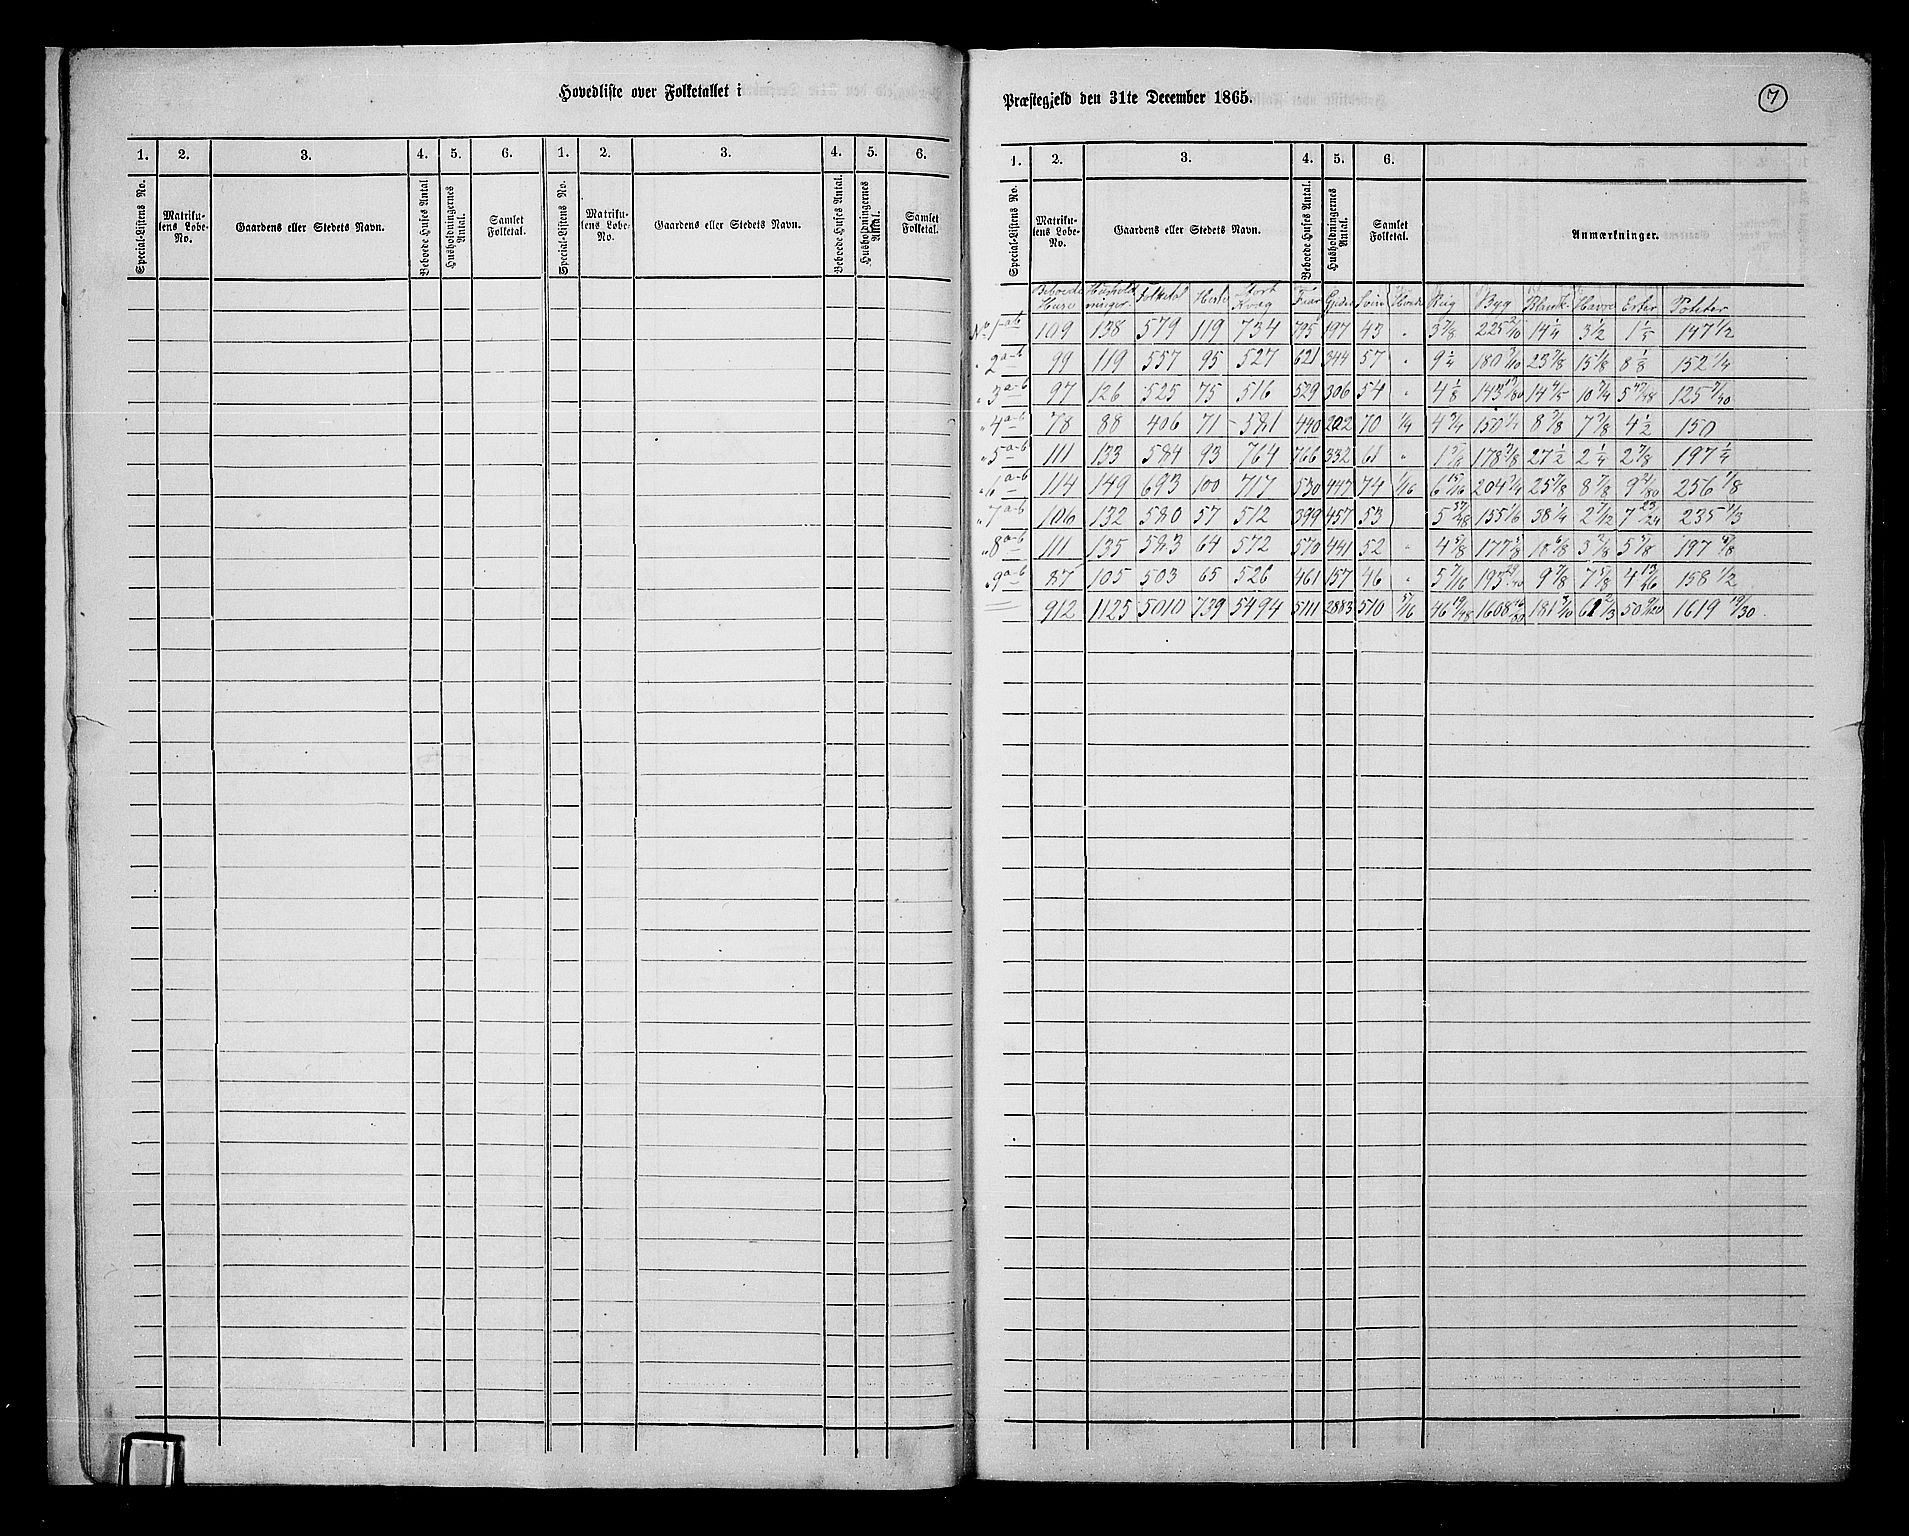 Hovedliste over Folketallet i
1. 2. 3. 4. 5. 6. 1. 2. 3. 4. 5. 6.
Special-Listens No. Matriku-lens Løbe-No. Gaardens eller Stedets Navn. Beboede Huses Antal Husholdningernes Antal. Samlet Folketal. Special-Listens No. Matriku-lens Løbe-No. Gaardens eller Stedets Navn. Beboede Huses Antal. Husholdningernes Antal. Samlet Folketal.
Præstegjeld den 31te December 1865. 7
1. 2. 3. 4. 5. 6.
Special-Listens No. Matriku-lens Løbe-No. Gaardens eller Stedets Navn. Beboede Huses Antal. Husholdningernes Antal. Samlet Folketal. Anmærkninger.
Beboede Huse Hushold ninger Folketal Heste Stort Kvæg Faar Gjeder Sviin Hvede Rug Byg Bland Havre Erter Poteter
No 1 a-b 109 138 579 119 734 795 197 43 " 3 7/8 225 14 1/4 3 1/2 1 1/5 147 1/2
" 2 a-b 99 119 557 95 527 621 344 57 " 9 1/4 180 3/10 23 7/8 15 1/8 8 1/8 152 1/4
" 3 a-b 97 126 525 75 516 529 306 54 " 4 1/8 143 14 4/5 10 3/4 5 125
" 4 a-b 78 88 406 71 581 440 202 70 1/4 4 3/4 150 1/4 8 7/8 7 7/8 4 1/2 150
" 5 a-b 111 133 584 93 764 766 332 61 " 1 178 3/8 27 1/2 2 1/4 2 7/8 197 1/4
" 6 a-b 114 149 693 100 717 530 447 74 1/16 6 15/16 204 3/4 25 7/8 8 7/8 9 256 1/8
" 7 a-b 106 132 580 57 512 399 457 53 5 37/48 155 1/6 38 1/4 2 7/12 7 23/24 235 1/3
" 8 a-b 111 135 583 64 572 570 441 52 " 4 5/8 177 5/8 18 6/8 3 5 7/8 197
" 9 a-b 87 105 503 65 526 461 157 46 " 5 7/16 193 9 7/8 7 5/8 4 13/16 158 1/2
912 1125 5010 739 5494 5111 2883 510 5/16 46 19/48 1608 181 3/10 61 2/3 50 9/20 1619 19/30